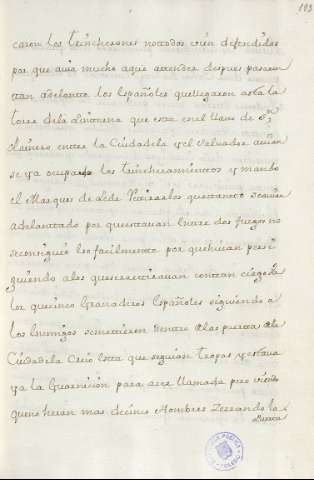 103
caron los trincherones no todos vien defendidos
por que avia mucho aque attender despues pasaron
tan adelante los Españoles que llegaron asta la
torre dela quintena que esta en el llano de Sn
clavero entre la Ciudadela y el salvador avian
se ya ocupado los trincheramientos y mando
el Marques de Lede Retirarlos que stanto se avian
adelantado por que stavan entre dos fuegos no
se consiguio les facilmente por que hivan persi
guiendo alos que se rettiravan con tan ciegos de
lor que cinco Granaderos Españoles siguiendo a
los Enemigos se mettieron dentro alas puertas dela
Ciudadela Creio esta que seguian tropas y estava
ya la Guarnicion para acer llamada pero viendo
que no heran mas de cinco Hombres Zerrando la
Puerta